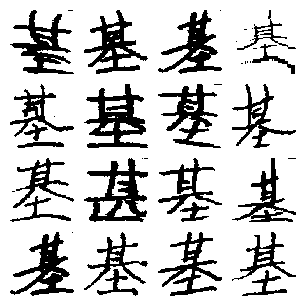 基基基基
基基基基
基基基基
基基基基